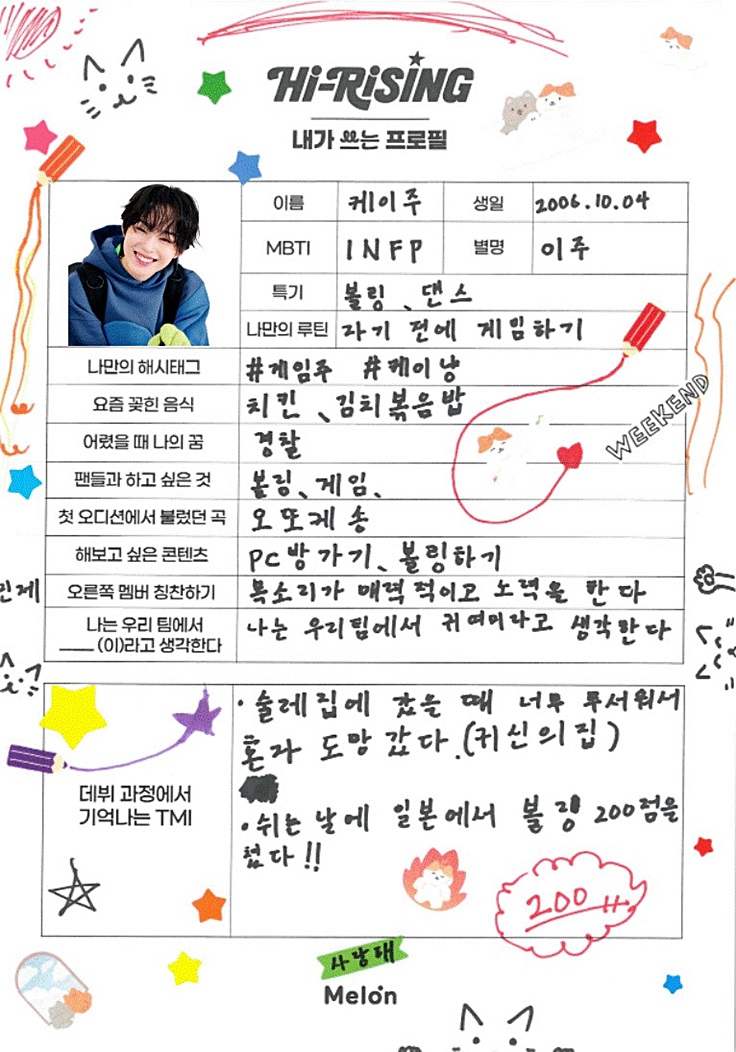 Hi-RiSiNG
내가 쓰는 프로필
이름 케이주 생일 2006.10.04
MBTI INFP 별명 이주
특기 볼링、댄스
나만의 루틴 자기 전에 게임하기
나만의 해시태그 #게임주 #케이냥
요즘 꽂힌 음식 치킨、김치볶음밥
어렸을 때 나의 꿈 경찰
WEEKEND
팬들과 하고 싶은 것 볼링、게임、
첫 오디션에서 불렀던 곡 오또케송
해보고 싶은 콘텐츠 PC방가기、볼링하기
민제
오른쪽 멤버 칭찬하기 목소리가 매력적이고 노력을 한다
나는 우리 팀에서 나는 우리팀에서 귀여미라고 생각한다
____ (이)라고 생각한다
·술레집에 갔을 때 너무 무서워서
혼자 도망갔다.(귀신의집)
데뷔 과정에서
기억나는 TMI
·쉬는 날에 일본에서 볼링 200점을
쳤다!!
200!!
사랑해
Melon